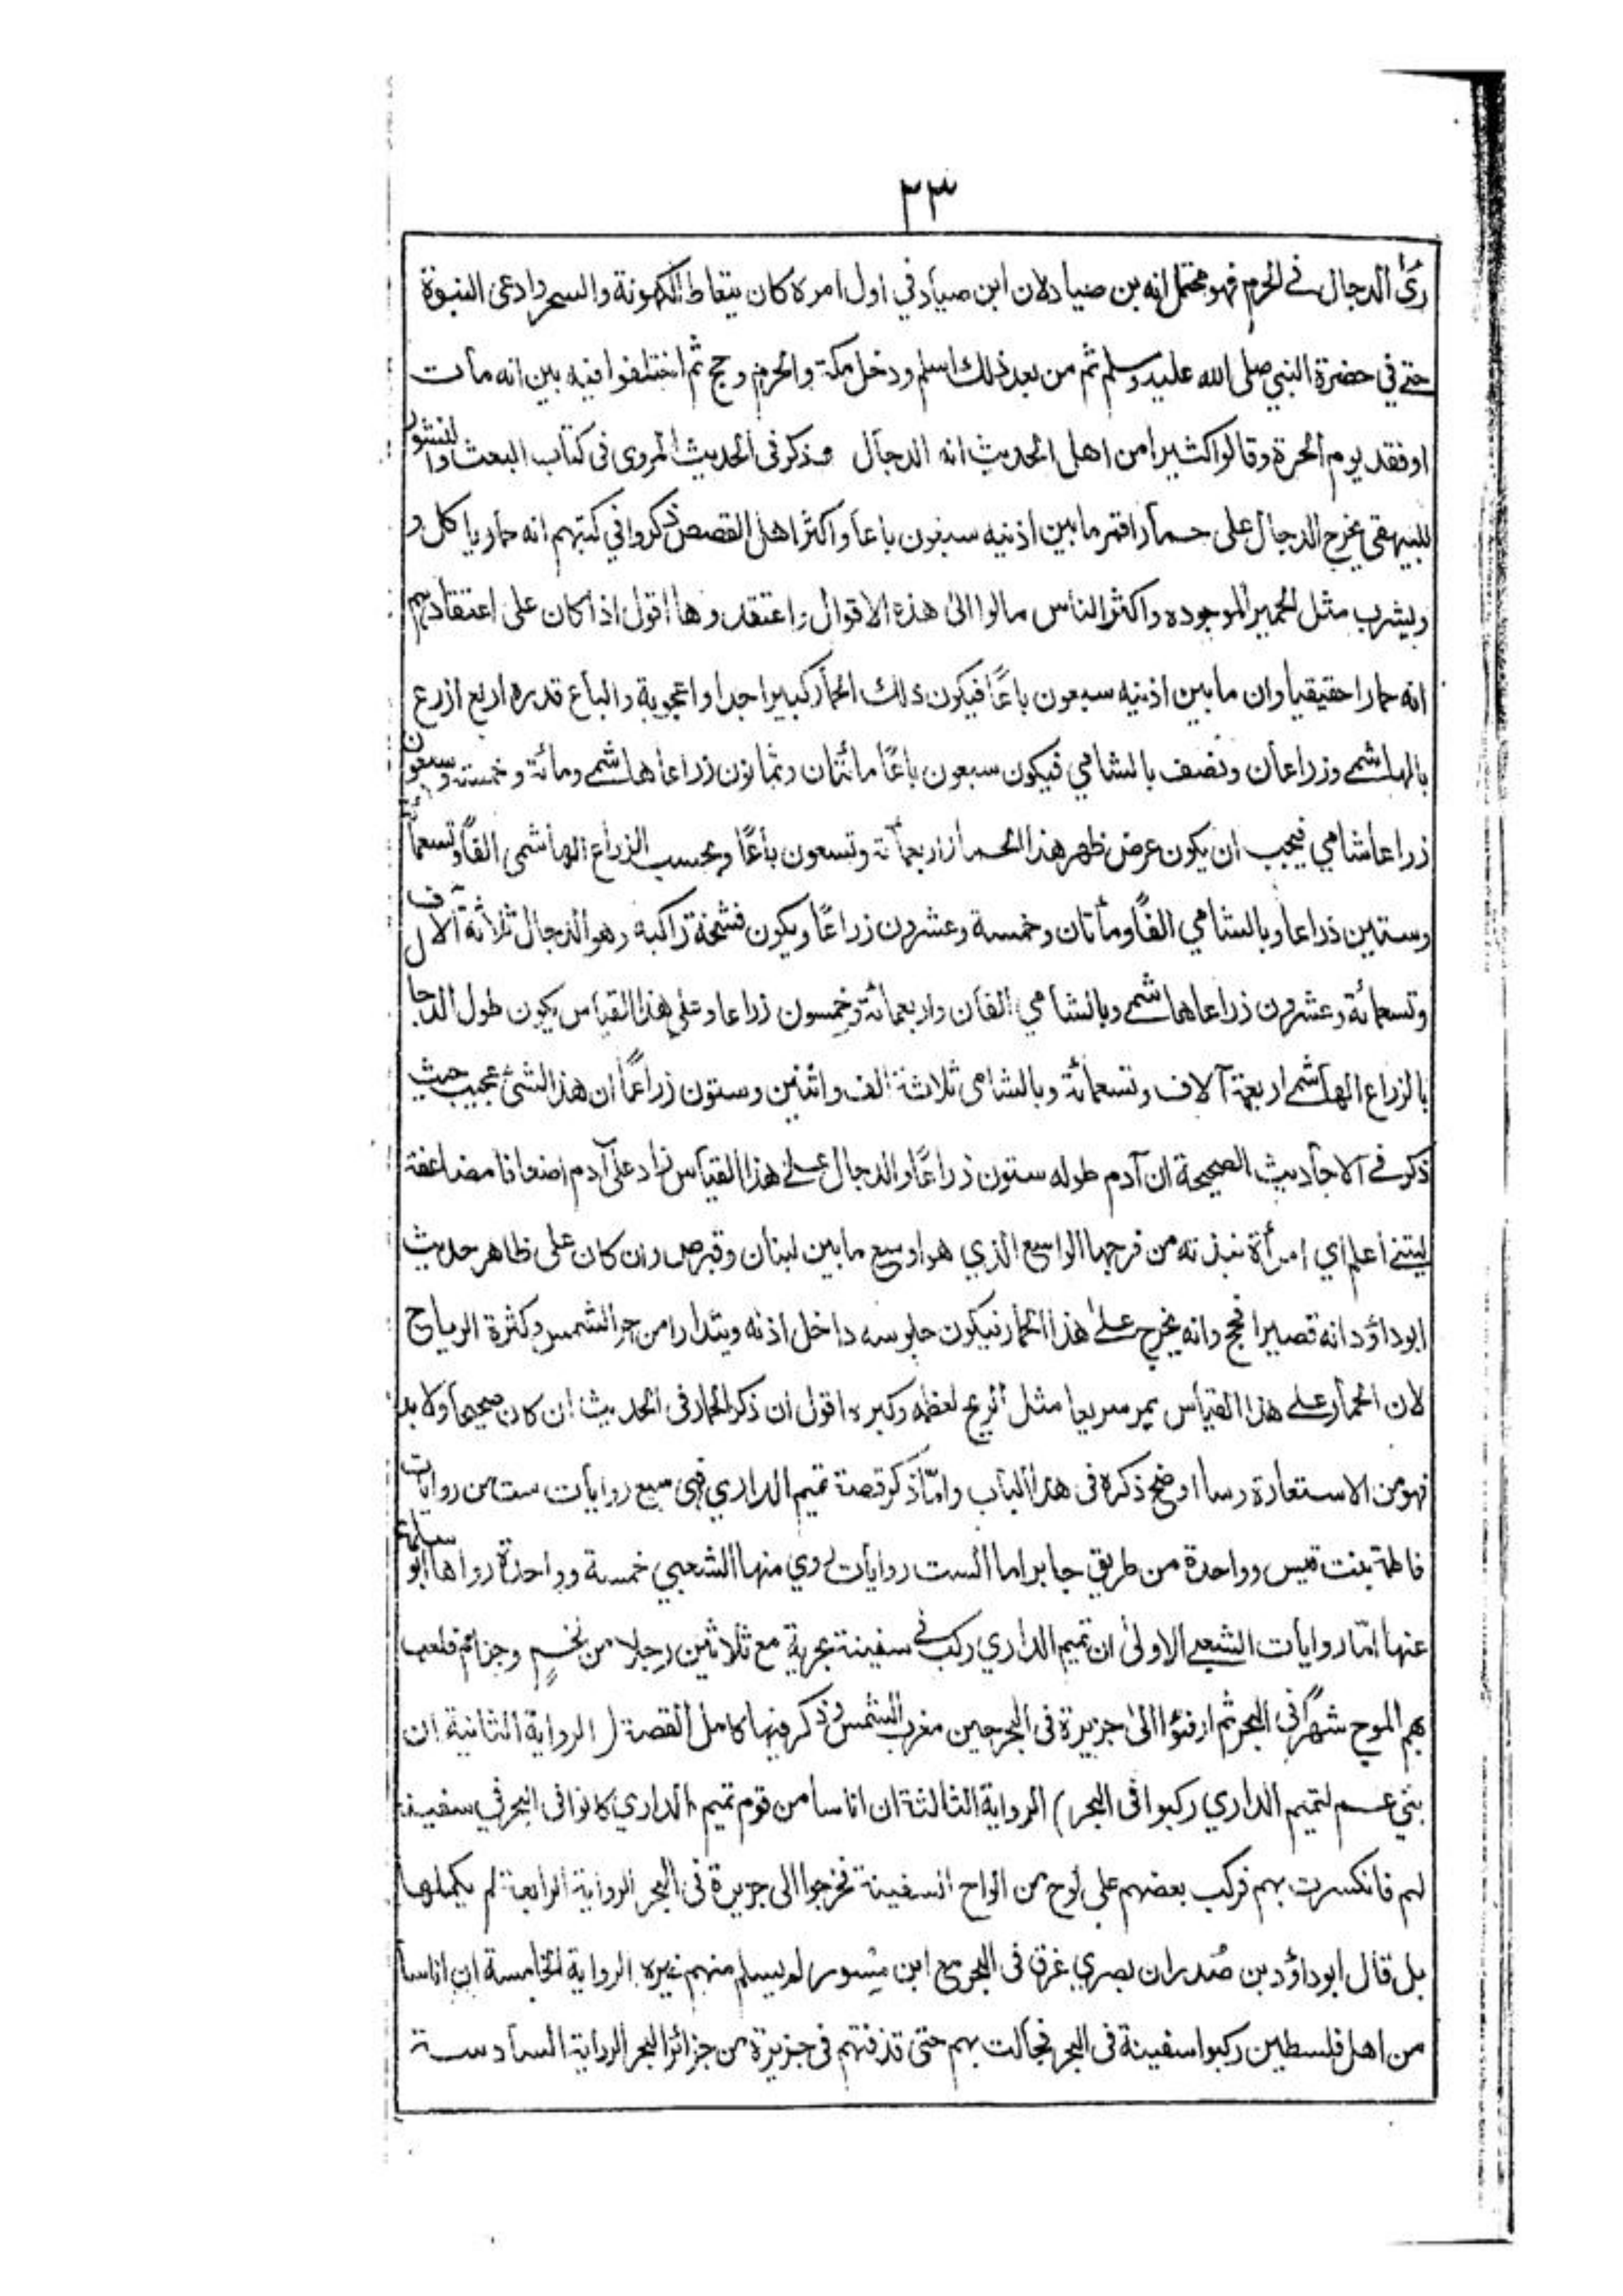 ٣٣
رُئ الدجال في الحرم فهو محتمل انه بن صياد لان ابن صياد في اول امره كان يتعاط الكهونة والسحر وادعى النبوة
حتى في حضرة النبي صلى الله عليه وسلم ثم من بعد ذلك اسلم ودخل مكة والحرم وحج ثم اختلفوا فيه بين انه مات
او فقد يوم الحرة وقالوا كثيرا من اهل الحديث انه الدجال وذكر فى الحديث المروى فى كتاب البعث والنشور
للبيهقى يخرج الدجال على حمار اقمر ما بين اذنيه سبعون باعا واكثر اهل القصص ذكروا في كتبهم انه حمار ياكل و
ويشرب مثل الحمير الموجوده واكثر الناس مالوا الى هذه الاقوال واعتقدوها اقول اذا كان على اعتقادهم
انه حمارا حقيقيا وان ما بين اذنيه سبعون باعًا فيكون ذلك الحمار كبيرا جدا واعجوبة والباع قدره اربع ازرع
بالهاشمى وزراعان ونصف بالشامي فيكون سبعون باعًا مائتان وثمانون زراعا هاشمى ومائة وخمسة وسبعون
ذراعا شامي فيجب ان يكون عرض ظهر هذا الحمار اربعمائة وتسعون باعًا وبحسب الزراع الهاشمى الفًا وتسعمائة
وستين ذراعا وبالشامي الفًا ومأتان وخمسة وعشرون زراعًا ويكون فشخة راكبه وهو الدجال ثلاثة آلاف
وتسعمائة وعشرون ذراعا هاشمى وبالشامي الفان واربعمائة وخمسون زراعا وعلى هذا القياس يكون طول الدجال
بالزراع الهاشمى اربعة آلاف وتسعمائة وبالشامى ثلاثة الف واثنين وستون زراعًا ان هذا لشئ عجيب حيث
ذكر في الاحاديث الصحيحة ان آدم طوله ستون ذراعًا والدجال على هذا القياس زاد على آدم اضعافا مضاعفة
ليتنى اعلم اي امرأة نبذته من فرجها الواسع الذي هو اوسع ما بين لبنان وقبرص وان كان على ظاهر حديث
ابو داؤد انه قصير افحج وانه يخرج على هذا الحمار فيكون جلوسه داخل اذنه ويتدارا من حر الشمس وكثرة الرياح
لان الحمار على هذا القياس يمر سريعا مثل الريح لعظمه وكبره اقول ان ذكر الحمار فى الحديث ان كان صحيحا ولا بد
فهو من الاستعارة وساوضح ذكره فى هذا الباب وامّا ذكر قصة تميم الداري فهى سبع روايات ست من روايات
فاطمة بنت قيس وواحدة من طريق جابر اما الست روايات روي منها الشعبي خمسة وواحدة رواها ابو سلمة
عنها امّا روايات الشعبى الاولى ان تميم الداري ركب في سفينة بحرية مع ثلاثين رجلا من لخمٍ وجزام فلعب
بهم الموج شهرًا فى البحر ثم ارفئوا الى جزيرة فى البحر حين مغرب الشمس وذكر فيها كامل القصة ( الرواية الثانية ان
بني عم لتميم الداري ركبوا فى البحر ) الرواية الثالثة ان اناسا من قوم تميم الداري كانوا فى البحر في سفينة
لهم فانكسرت بهم فركب بعضهم على لوح من الواح السفينة فخرجوا الى جزيرة فى البحر الرواية الرابعة لم يكملها
بل قال ابو داؤد بن صُدران بصري غرق فى البحر مع ابن مِسْور لم يسلم منهم غيره الرواية الخامسة ان اناسا
من اهل فلسطين ركبوا سفينة فى البحر فجالت بهم حتى قذفتهم فى جزيرة من جزائر البحر الرواية السادسة